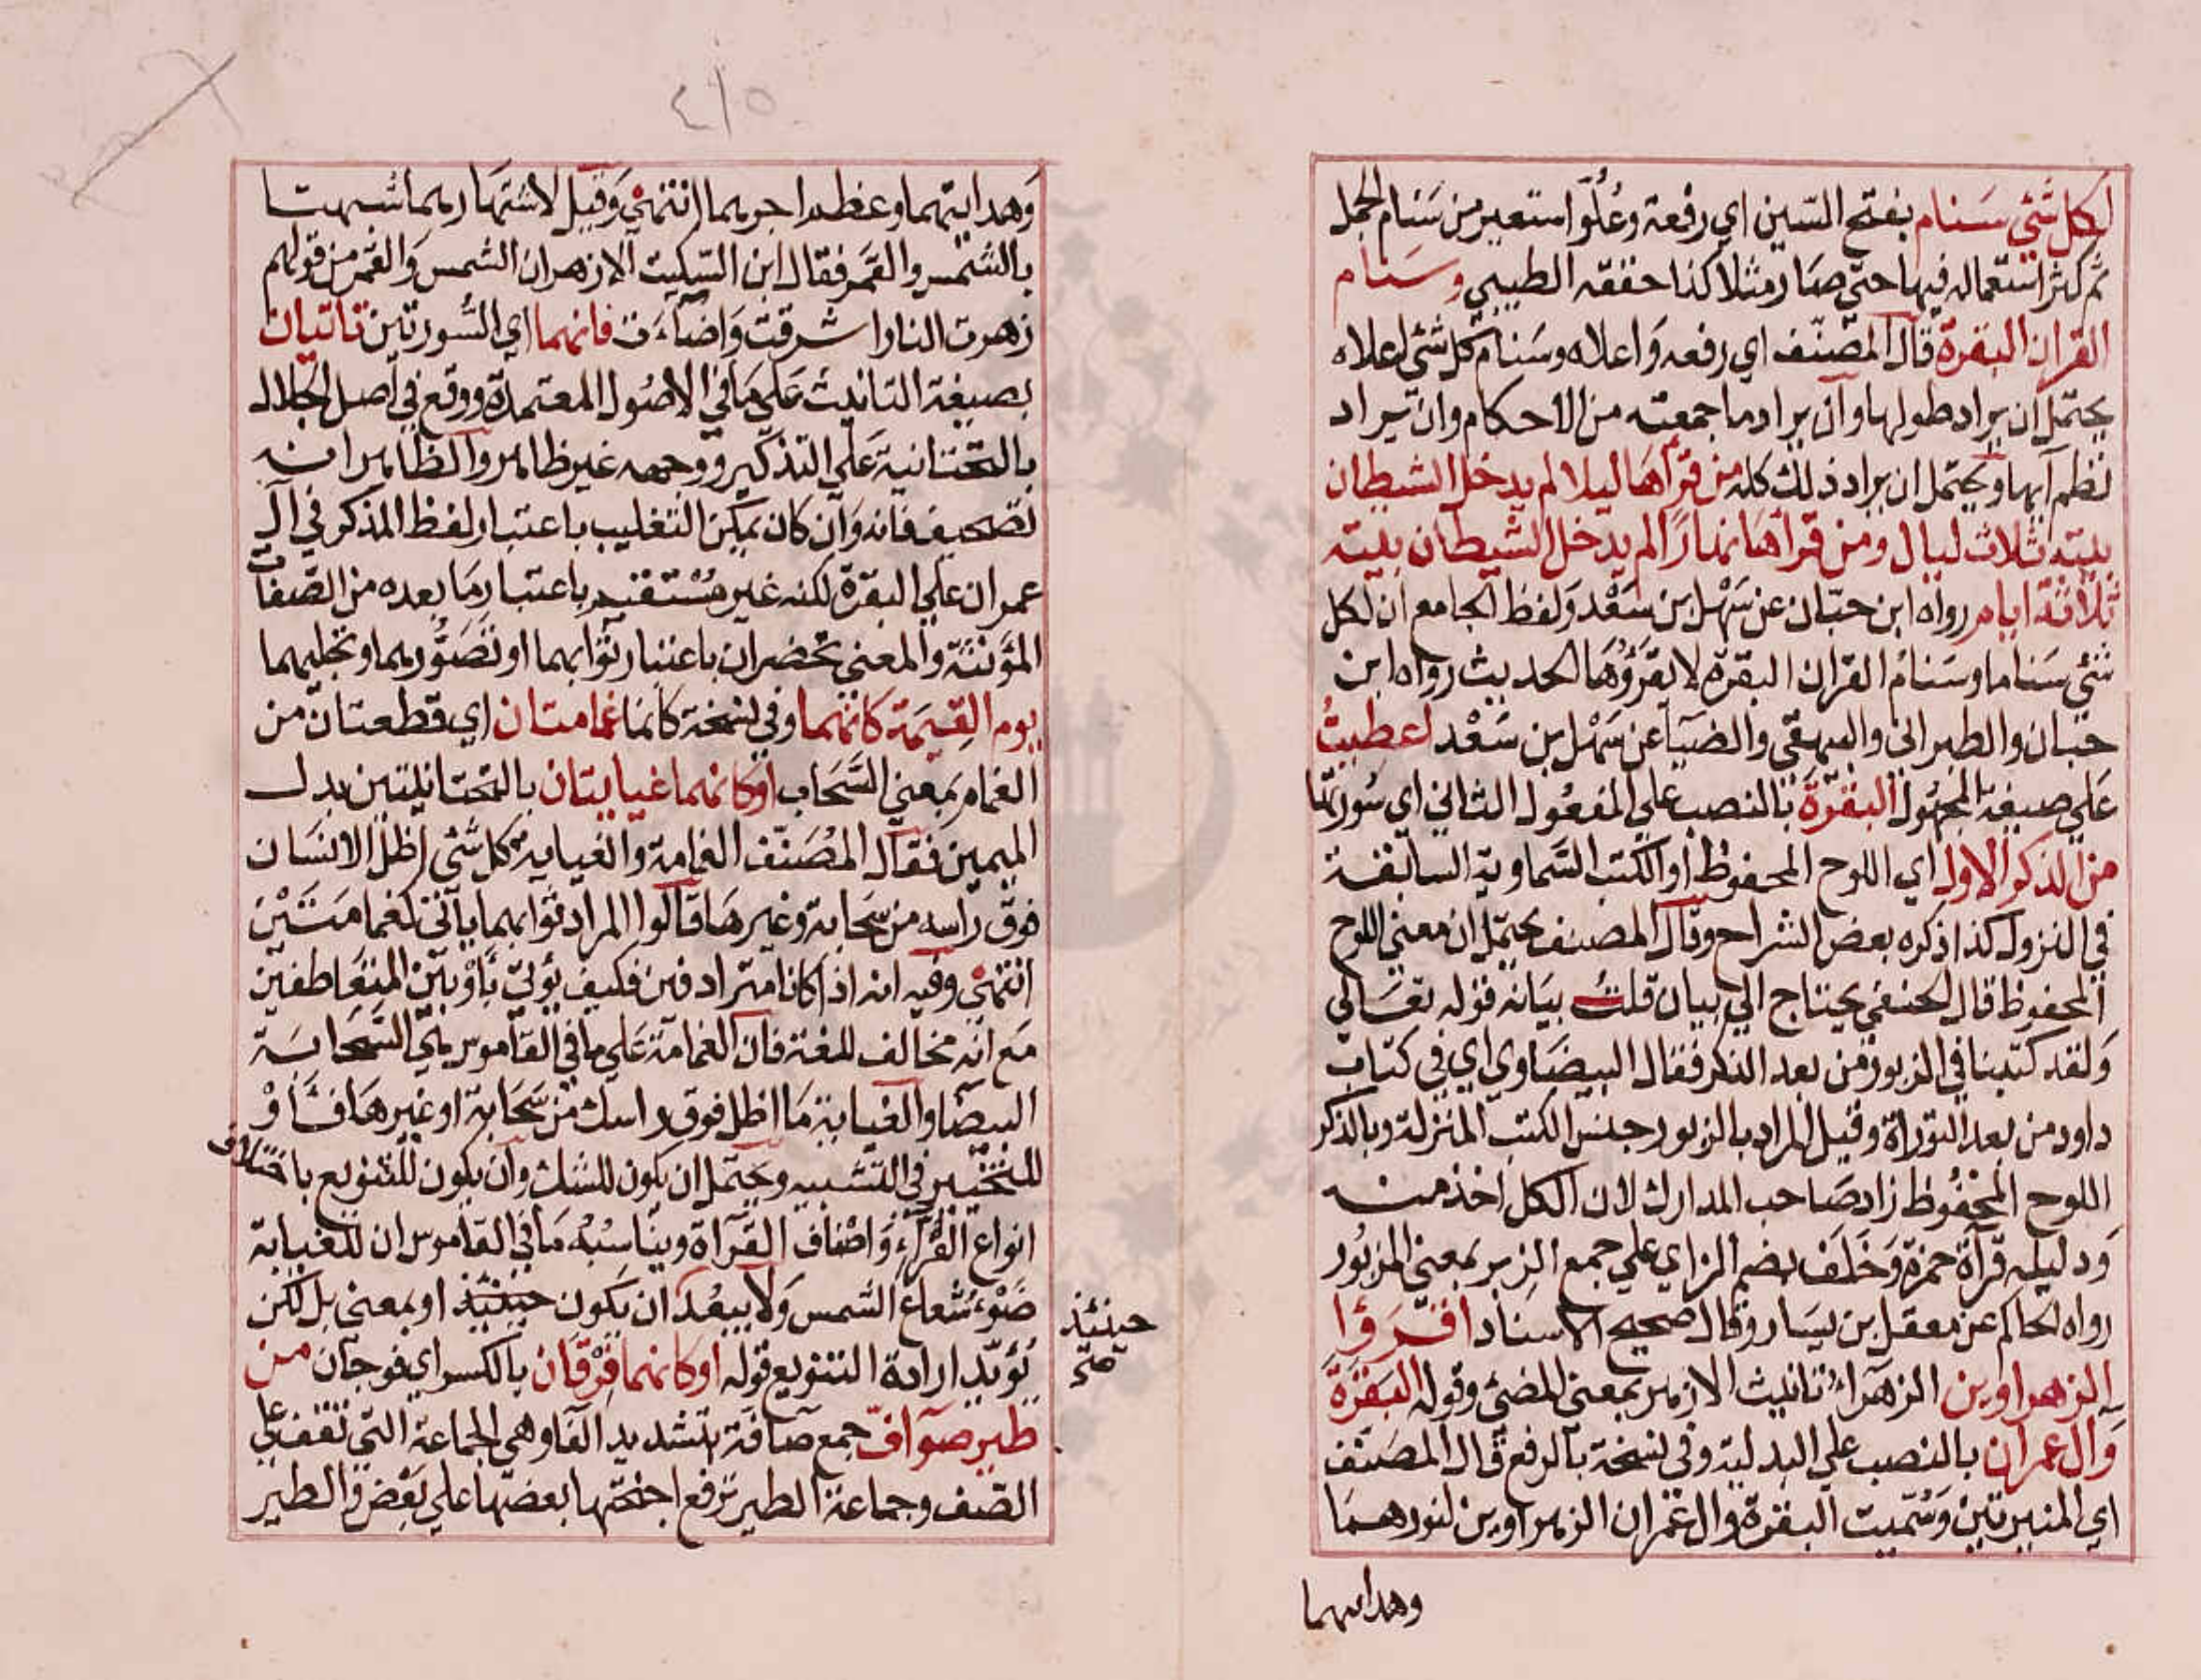 لكل شئ سنام بفتح السين اي رفعة وعلو استعير من سنام الجمل
ثم كثر استعماله فيها حتي صار مثلا كذا حققه الطيبي وسنام
القران البقرة قال المصنف اي رفعه واعلاه وسنام كل شئ اعلاه
يحتمل ان يراد طولها وان يراد ما جمعته من الاحكام وان يراد
نظم آيها ويحتمل ان يراد ذلك كله من قرأها ليلا لم يدخل الشيطان
بيته ثلاث ليال ومن قرأها نهارًا لم يدخل الشيطان بيته
ثلاثة ايام رواه ابن حبان عن سهل بن سعد ولفظ الجامع ان لكل
شئ سناما وسنام القران البقرة لا يقرؤها الحديث رواه ابن
حبان والطبراني والبيهقي والضيا عن سهل بن سعد اعطيتُ
علي صيغة المجهول البقرة بالنصب علي المفعول الثاني اي سورتها
من الذكر الاول اي اللوح المحفوظ او الكتب السماوية السابقة
في النزول كذا ذكره بعض الشراح وقال المصنف يحتمل ان معني اللوح
المحفوظ قال الحنفي يحتاج الي بيان قلت بيانه قوله تعالي
ولقد كتبنا في الزبور من بعد الذكر فقال البيضاوي اي في كتاب
داود من بعد التوراة وقيل المراد بالزبور جنس الكتب المنزلة وبالذكر
اللوح المحفوظ زاد صاحب المدارك لان الكل اخذ منه
ودليله قرآة حمزة وخلف بضم الزاي علي جمع الزبر بمعني المزبور
رواه الحاكم عن معقل بن يسار وقال صحيح الاسناد اقرؤا
الزهراوين الزهراء تانيث الازهر بمعني المضئ وقوله البقرة
وآل عمران بالنصب علي البدلية وفي نسخة بالرفع قال المصنف
اي المنيرتين وسميت البقرة وال عمران الزهراوين لنورهما
وهدايتهما
٤١٥
وهدايتهما وعظم اجرهما انتهي وقيل لاشتهارهما شبهتا
بالشمس والقمر فقال ابن السكيت الازهران الشمس والقمر من قولهم
زهرت النار اشرقت واضاءت فانهما اي السورتين تاتيان
بصيغة التانيث علي ما في الاصول المعتمدة ووقع في اصل الجلال
بالتحتانية علي التذكير ووجهه غير ظاهر والظاهر انه
تصحيف فانه وان كان يمكن التغليب باعتبار لفظ المذكر في آل
عمران علي البقرة لكنه غير مستقيم باعتبار ما بعده من الصفات
المؤنثة والمعني تحضران باعتبار ثوابهما او تصورهما وتجليهما
يوم القيمة كانهما وفي نسخة كانما غمامتان اي قطعتان من
الغمام بمعني السحاب او كانهما غيايتان بالتحتانيتين بدل
الميمين فقال المصنف الغمامة والغياية كل شئ اظل الانسان
فوق راسه من سحابة وغيرها قالوا المراد ثوابهما ياتي كغمامتين
انتهي وفيه انه اذا كانا مترادفين فكيف يؤتي باو بين المتعاطفين
مع انه مخالف للغة فان الغمامة علي ما في القاموس هي السحابة
البيضا والغياية ما اظل فوق راسك من سحابة او غيرها فاو
للتخيير في التشبيه ويحتمل ان يكون للشك وان يكون للتنويع باختلاف
انواع القراء واصناف القرآة ويناسبه ما في القاموس ان للغياية
ضوء شعاع الشمس ولا يبعد ان يكون حينئذ او بمعني بل لكن
حينئذ
صح
يؤيد ارادة التنويع قوله او كانهما فرقان بالكسر اي فوجان من
طير صوآف جمع صافة بتشديد الفا وهي الجماعة التي تقف علي
الصف وجماعة الطير ترفع اجنحتها بعضها علي بعض والطير